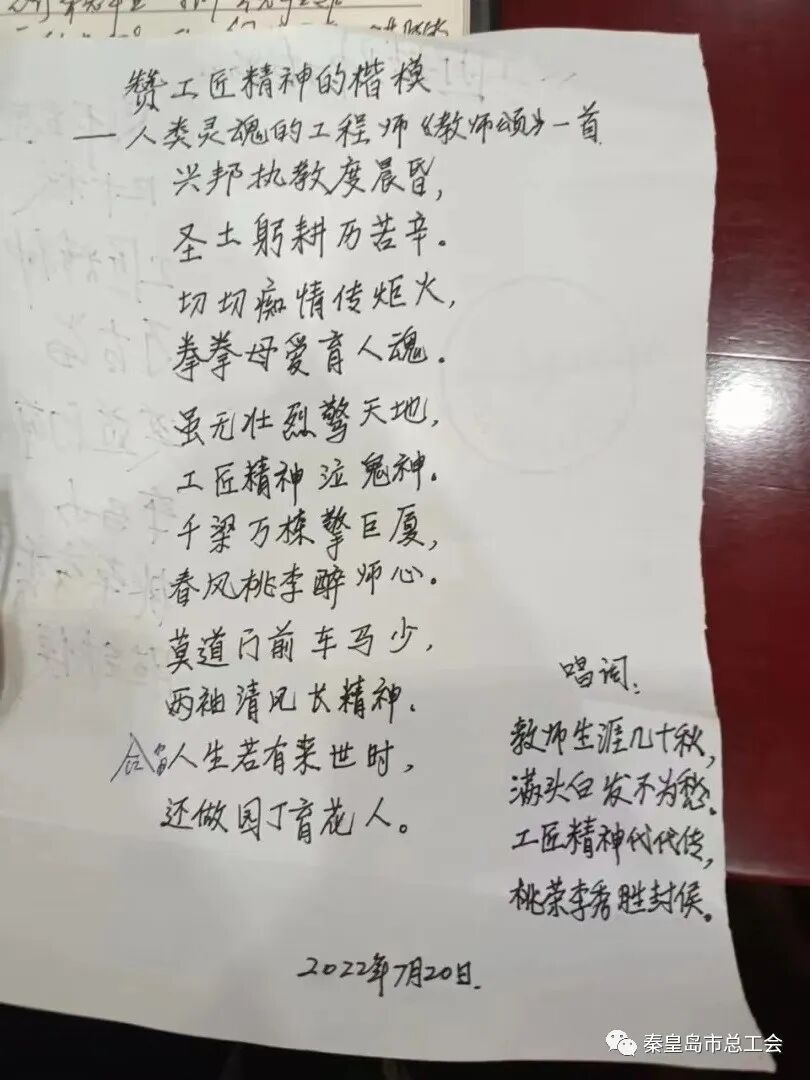 赞工匠精神的楷模
— 人类灵魂的工程师《教师颂》一首
兴邦执教度晨昏，
圣土躬耕历苦辛。
切切痴情传炬火，
拳拳母爱育人魂。
虽无壮烈擎天地，
工匠精神泣鬼神。
千梁万栋擎巨厦，
春风桃李醉师心。
莫道门前车马少，
两袖清风长精神。
人生若有来世时，
还做园丁育花人。
唱词：
教师生涯几十秋，
满头白发不为愁。
工匠精神代代传，
桃荣李秀胜封侯。
2022年7月20日.
秦皇岛市总工会